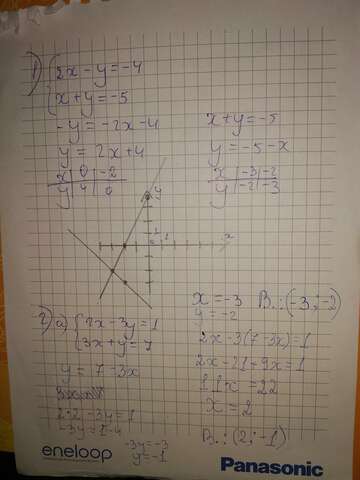 1) { 2x - y = -4
x + y = -5
-y = -2x - 4
y = 2x + 4
x | 0 | -2
y | 4 | 0
x + y = -5
y = -5 - x
x | -3 | -2
y | -2 | -3
y
x
1
x = -3 В.: (-3; -2)
y = -2
2) а) { 2x - 3y = 1
3x + y = 7
y = 7 - 3x
2·2 - 3y = 1
-3y = 1 - 4
-3y = -3
y = -1
2x - 3(7 - 3x) = 1
2x - 21 + 9x = 1
11x = 22
x = 2
В.: (2; -1)
eneloop
Panasonic